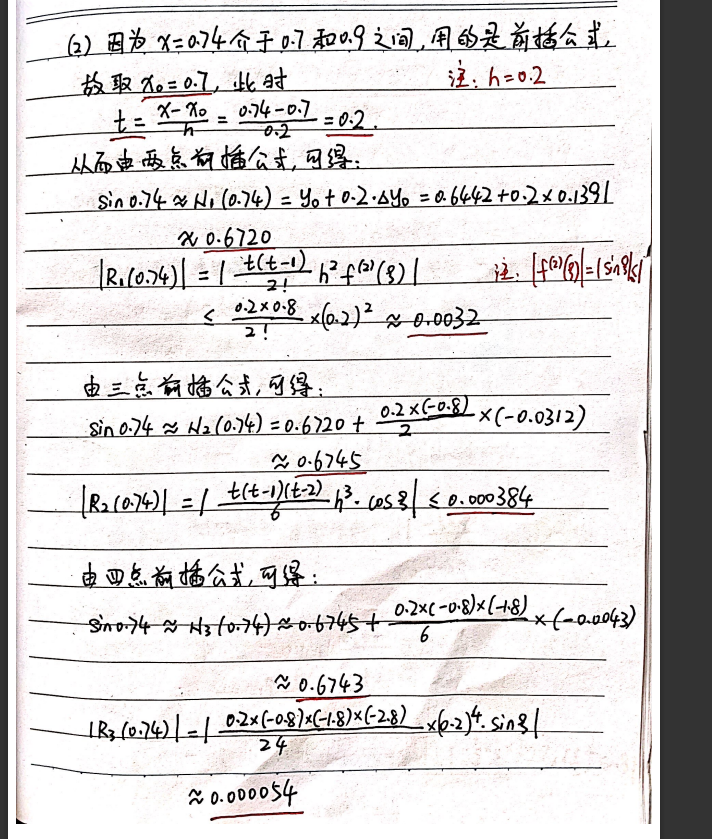 (2) 因为 x=0.74 介于 0.7 和 0.9 之间, 用的是前插公式,
故取 x₀=0.7, 此时 注: h=0.2
t = (x-x₀)/h = (0.74-0.7)/0.2 = 0.2.
从而由两点前插公式, 可得:
sin 0.74 ≈ N₁(0.74) = y₀ + 0.2·Δy₀ = 0.6442 + 0.2×0.1391
≈ 0.6720
|R₁(0.74)| = | t(t-1)/2! h² f⁽²⁾(ξ) | 注. |f⁽²⁾(ξ)|=|sinξ|≤1
≤ 0.2×0.8/2! ×(0.2)² ≈ 0.0032
由三点前插公式, 可得:
sin 0.74 ≈ N₂(0.74) = 0.6720 + 0.2×(-0.8)/2 ×(-0.0312)
≈ 0.6745
|R₂(0.74)| = | t(t-1)(t-2)/6 h³· cosξ| ≤ 0.000384
由四点前插公式, 可得:
sin 0.74 ≈ N₃(0.74) ≈ 0.6745 + 0.2×(-0.8)×(-1.8)/6 ×(-0.0043)
≈ 0.6743
|R₃(0.74)| = | 0.2×(-0.8)×(-1.8)×(-2.8)/24 ×(0.2)⁴· sinξ|
≈ 0.000054